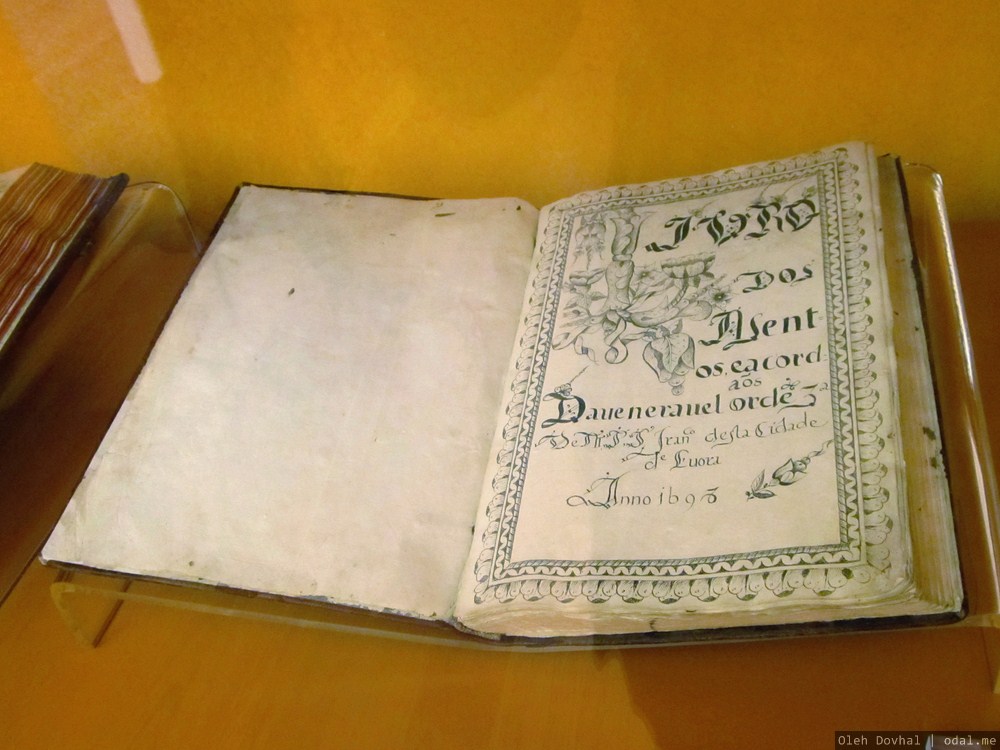 LIVRO
DOS
Asent
os, eacord
aõs
Da venerauel ordē 3ª
De N. P. S. Franᶜᵒ desta Cidade
dᵉ Euora
Anno 1695
Oleh Dovhal | odal.me